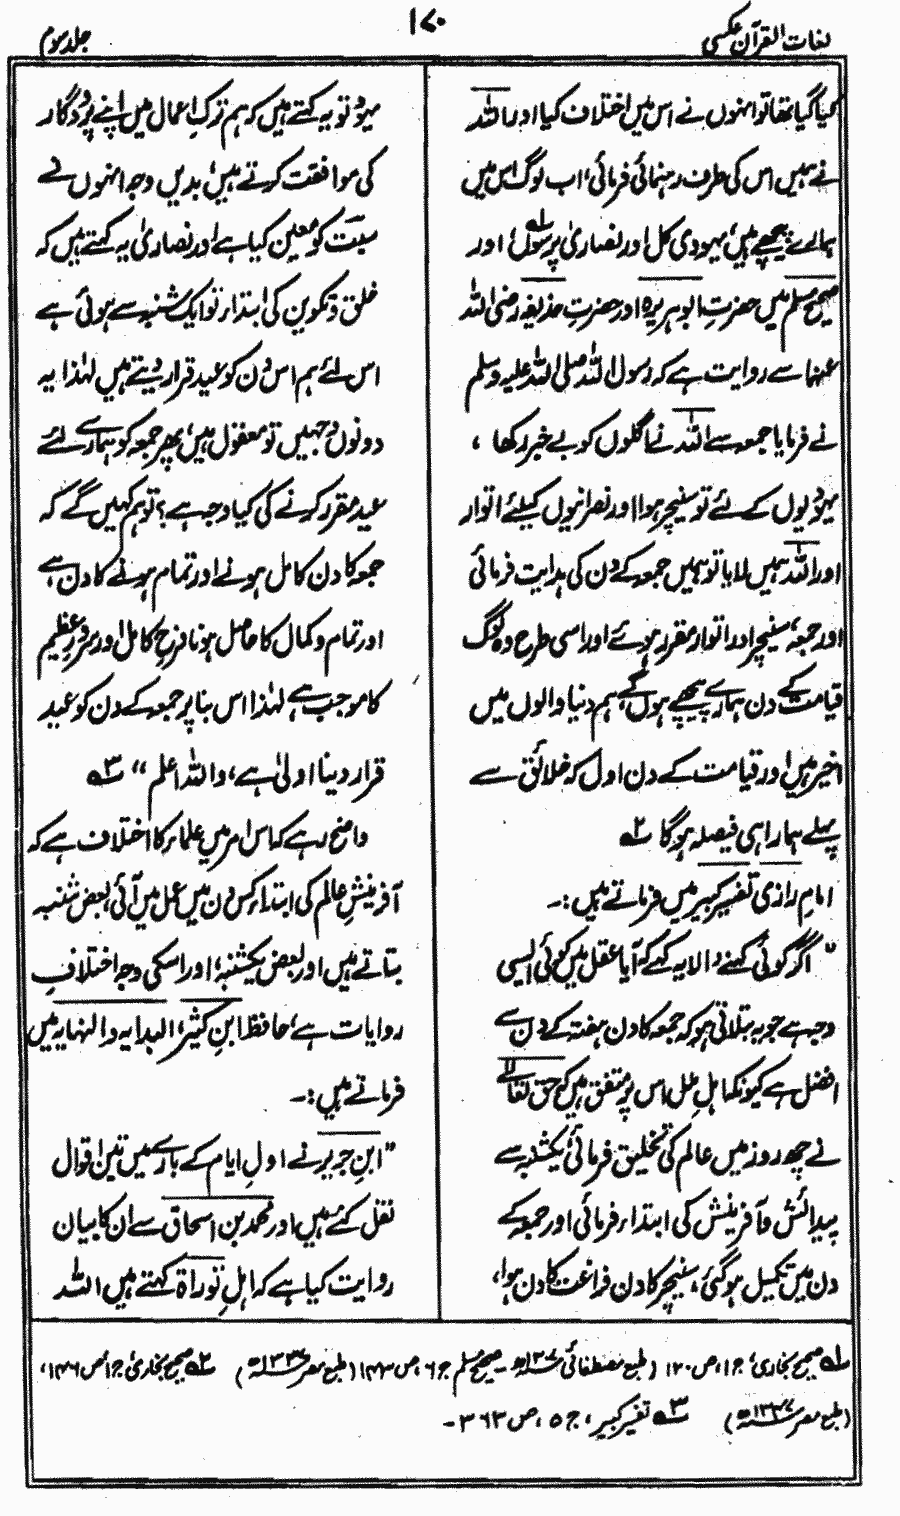 لغات القرآن عکسی
۱۷۰
جلد سوم
کیا گیا تھا تو انہوں نے اس میں اختلاف کیا اور اللہ
نے ہمیں اس کی طرف رہنمائی فرمائی، اب لوگ اس میں
ہمارے پیچھے ہیں، یہودی کل اور نصاریٰ پرسوں ؎۱، اور
صحیح مسلم میں حضرت ابو ہریرہ اور حضرت حذیفہ رضی اللہ
عنہما سے روایت ہے کہ رسول اللہ صلی اللہ علیہ وسلم
نے فرمایا جمعہ سے اللہ نے اگلوں کو بے خبر رکھا،
یہودیوں کے لئے تو سنیچر ہوا اور نصرانیوں کیلئے اتوار
اور اللہ ہمیں لایا تو ہمیں جمعہ کے دن کی ہدایت فرمائی
اور جمعہ، سنیچر اور اتوار مقرر ہوئے اور اسی طرح وہ لوگ
قیامت کے دن ہمارے پیچھے ہوں گے، ہم دنیا والوں میں
اخیر ہیں اور قیامت کے دن اول کہ خلائق سے
پہلے ہمارا ہی فیصلہ ہوگا ؎۲
امام رازی تفسیر کبیر میں فرماتے ہیں :۔
" اگر کوئی کہنے والا یہ کہے کہ آیا عقل میں کوئی ایسی
وجہ ہے جو یہ بتلاتی ہو کہ جمعہ کا دن ہفتہ کے دن سے
افضل ہے کیونکہ اہل ملل اس پر متفق ہیں کہ حق تعالیٰ
نے چھ روز میں عالم کی تخلیق فرمائی، یکشنبہ سے
پیدائش و آفرینش کی ابتداء فرمائی اور جمعہ کے
دن میں تکمیل ہوگئی، سنیچر کا دن فراغت کا دن ہوا،
یہود تو یہ کہتے ہیں کہ ہم ترک اعمال میں اپنے پروردگار
کی موافقت کرتے ہیں، بدیں وجہ انہوں نے
سبت کو معین کیا ہے اور نصاریٰ یہ کہتے ہیں کہ
خلق و تکوین کی ابتداء تو ایک شنبہ سے ہوئی ہے
اس لئے ہم اس دن کو عید قرار دیتے ہیں لہٰذا یہ
دونوں وجہیں تو معقول ہیں، پھر جمعہ کو ہمارے لئے
عید مقرر کرنے کی کیا وجہ ہے؟ تو ہم کہیں گے کہ
جمعہ کا دن کامل ہونے اور تمام ہونے کا دن ہے
اور تمام و کمال کا حاصل ہونا فرح کامل اور سرور عظیم
کا موجب ہے لہٰذا اس بنا پر جمعہ کے دن کو عید
قرار دینا اولیٰ ہے، واللہ اعلم " ؎۳
واضح رہے کہ اس امر میں علماء کا اختلاف ہے کہ
آفرینش عالم کی ابتداء کس دن میں عمل میں آئی، بعض شنبہ
بتاتے ہیں اور بعض یکشنبہ، اور اسکی وجہ اختلاف
روایات ہے، حافظ ابن کثیر، البدایہ والنہایہ میں
فرماتے ہیں :۔
"ابن جریر نے اول ایام کے بارے میں تین اقوال
نقل کئے ہیں اور محمد بن اسحاق سے ان کا بیان
روایت کیا ہے کہ اہل توراۃ کہتے ہیں اللہ
؎۱ صحیح بخاری، ج۱، ص۱۲۰ (طبع مصطفائی ۱۳۰۷ھ۔ صحیح مسلم ج۶، ص۱۴۳ (طبع مصر ۱۳۳۴ھ) ؎۲ صحیح بخاری، ج۱ ص۱۴۶،
(طبع مصر ۱۳۳۴ھ) ؎۳ تفسیر کبیر، ج۵، ص۳۶۳۔